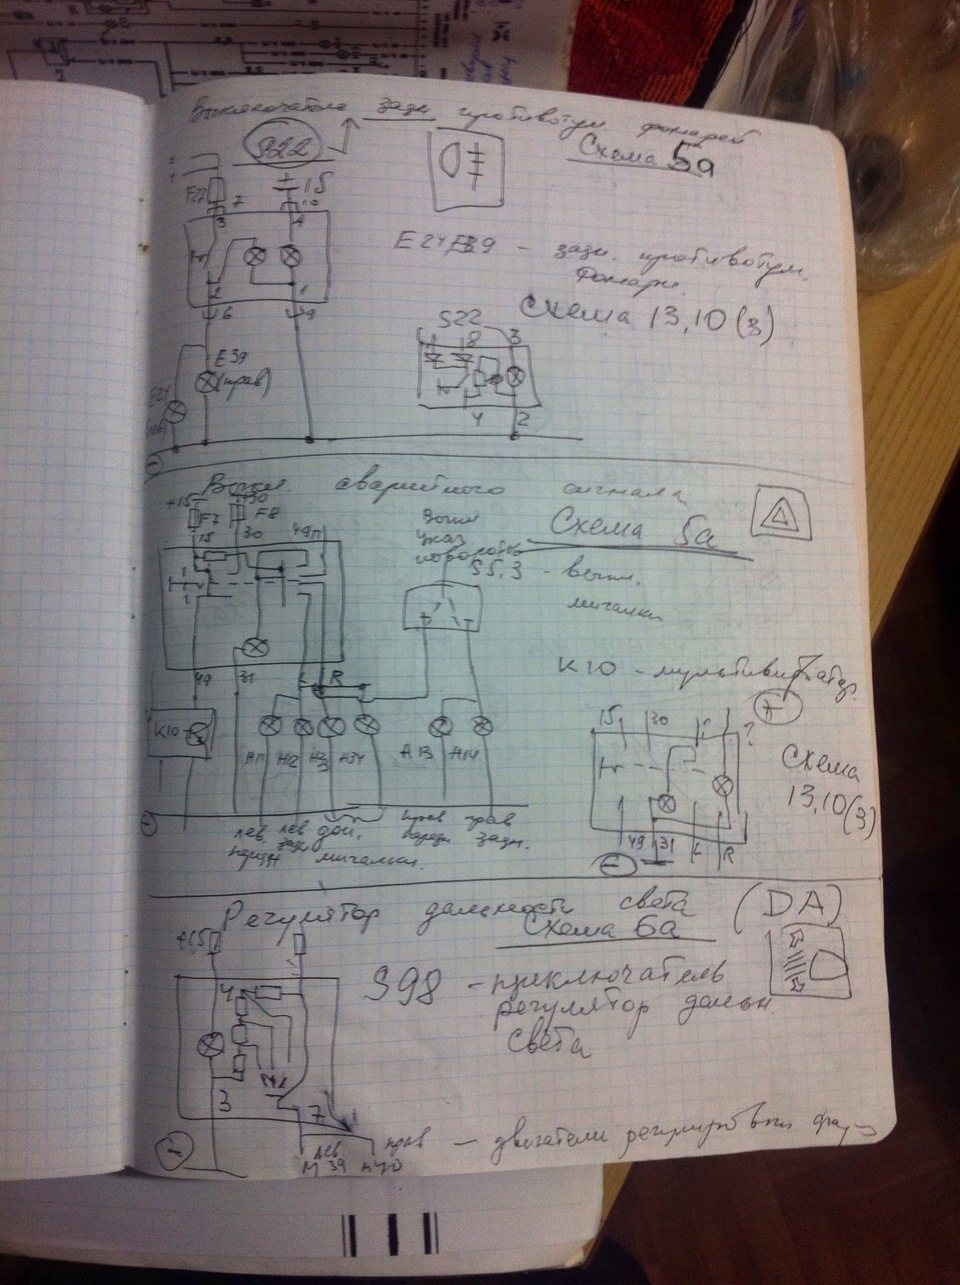 Выключатель задн противотум. фонарей
S22
Схема 5а
F27
7
15
3
4
10
E24 E39 - задн. противотум.
фонари.
Схема 13,10 (3)
2
1
6
9
S22
8
3
E39
(прав)
4
2
Выкл. аварийного сигнала
+15
30
F7
F8
15
30
49а
Выкл
указ
поворотов
Схема 5а
S5.3 - выкл.
мигалки
K10 - мультивибратор.
49
31
L
R
K10
H11
H12
H33
H34
H13
H14
15
30
?
+
Схема
13,10(3)
49
31
L
R
лев
передн
лев
задн
доп.
мигалки.
прав
передн
прав
задн.
Регулятор дальности света
(DA)
Схема 6а
+15
S98 - приключатель
регулятор дальн.
света
4
3
7
лев
прав
M39
M40
- двигатели регулировки фар